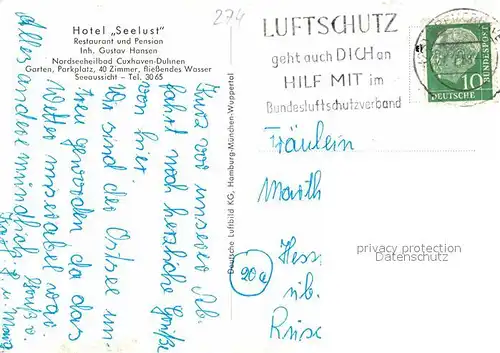 Hotel „Seelust"
Restaurant und Pension
Inh. Gustav Hansen
Nordseeheilbad Cuxhaven-Duhnen
Garten, Parkplatz, 40 Zimmer, fließendes Wasser
Seeaussicht – Tel. 3065
274
LUFTSCHUTZ
geht auch DICH an
HILF MIT im
Bundesluftschutzverband
10
DEUTSCHE
BUNDESPOST
Deutsche Luftbild KG, Hamburg-München-Wuppertal
Kurz vor unserer Ab-
fahrt noch herzliche Grüße
von hier.
Wir sind der Ostsee un-
treu geworden da das
Wetter miserabel war
alles andere mündlich
Fräulein
20a
Hess.
üb.
privacy protection
Datenschutz